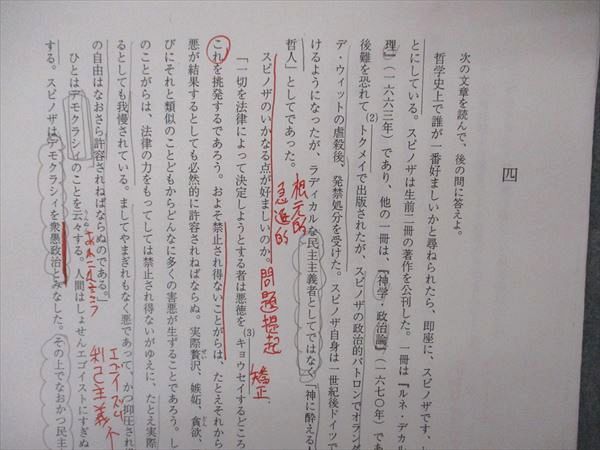 四
次の文章を読んで、後の問に答えよ。
哲学史上で誰が一番好ましいかと尋ねられたら、即座に、スピノザです、
とにしている。スピノザは生前二冊の著作を公刊した。一冊は『ルネ・デカル
理』（一六六三年）であり、他の一冊は、『神学・政治論』（一六七〇年）であ
後難を恐れて(2)トクメイで出版されたが、スピノザの政治的パトロンでオラン
デ・ウィットの虐殺後、発禁処分を受けた。スピノザ自身は一世紀後ドイツで
けるようになったが、ラディカルな民主主義者としてではなく、「神に酔える
哲人」としてであった。
根元的
急進的
スピノザのいかなる点が好ましいのか。
問題提起
「一切を法律によって決定しようとする者は悪徳を(3)キョウセイするどころ
矯正
これを挑発するであろう。およそ禁止され得ないことがらは、たとえそれから
悪が結果するとしても必然的に許容されねばならぬ。実際贅沢、嫉妬、貪欲、
びにそれと類似のことどもからどんなに多くの害悪が生ずることであろう。し
のことがらは、法律の力をもってしては禁止され得ないがゆえに、たとえ実際
るとしても我慢されている。ましてやまぎれもなく悪であって、かつ抑圧され得
の自由はなおさら許容されねばならぬのである。」
ひとはデモクラシイのことを云々する。人間はしょせんエゴイストにすぎぬ
うんぬん
エゴイズム
利己主義
する。スピノザはデモクラシイを衆愚政治とみなした。その上でなおかつ民主